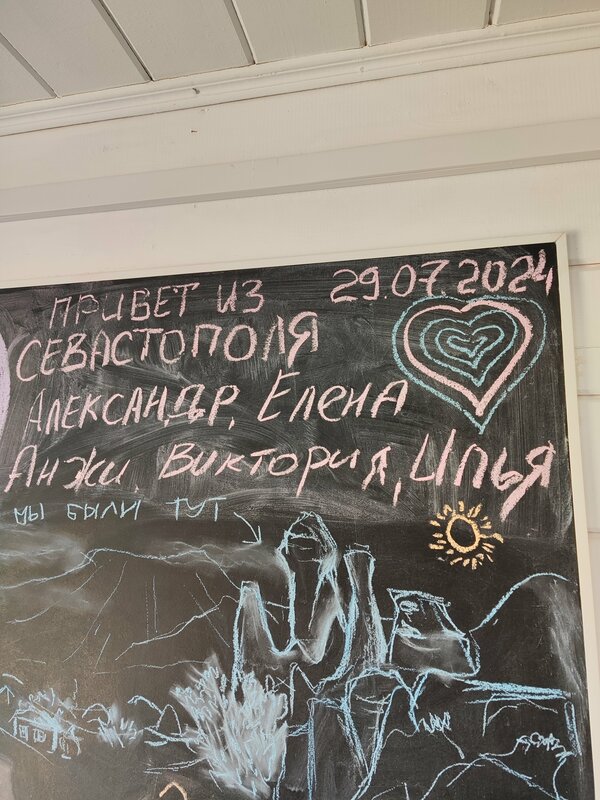 ПРИВЕТ ИЗ 29.07.2024
СЕВАСТОПОЛЯ
АЛЕКСАНДР, ЕЛЕНА
АНЖИ, ВИКТОРИЯ, ИЛЬЯ
МЫ БЫЛИ ТУТ